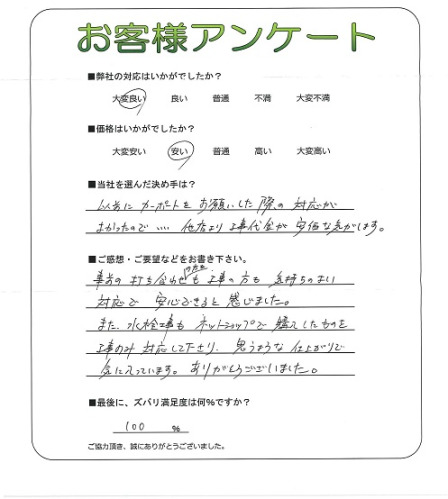 お客様アンケート
■弊社の対応はいかがでしたか？
大変良い 良い 普通 不満 大変不満
■価格はいかがでしたか？
大変安い 安い 普通 高い 大変高い
■当社を選んだ決め手は？
以前に カーポートを お願いした 際の 対応が
よかったので 他店より 工事代金が 安価な気がします。
■ご感想・ご要望などをお書き下さい。
事前の 打ち合わせも 工事の方も 気持ちのよい
対応で 安心できると 感じました。
また、水栓工事も ネットショップで 購入したものを
工事のみ 対応して下さり、思うような 仕上がりで
気に入っています。ありがとうございました。
■最後に、ズバリ満足度は何%ですか？
100 %
ご協力頂き、誠にありがとうございました。